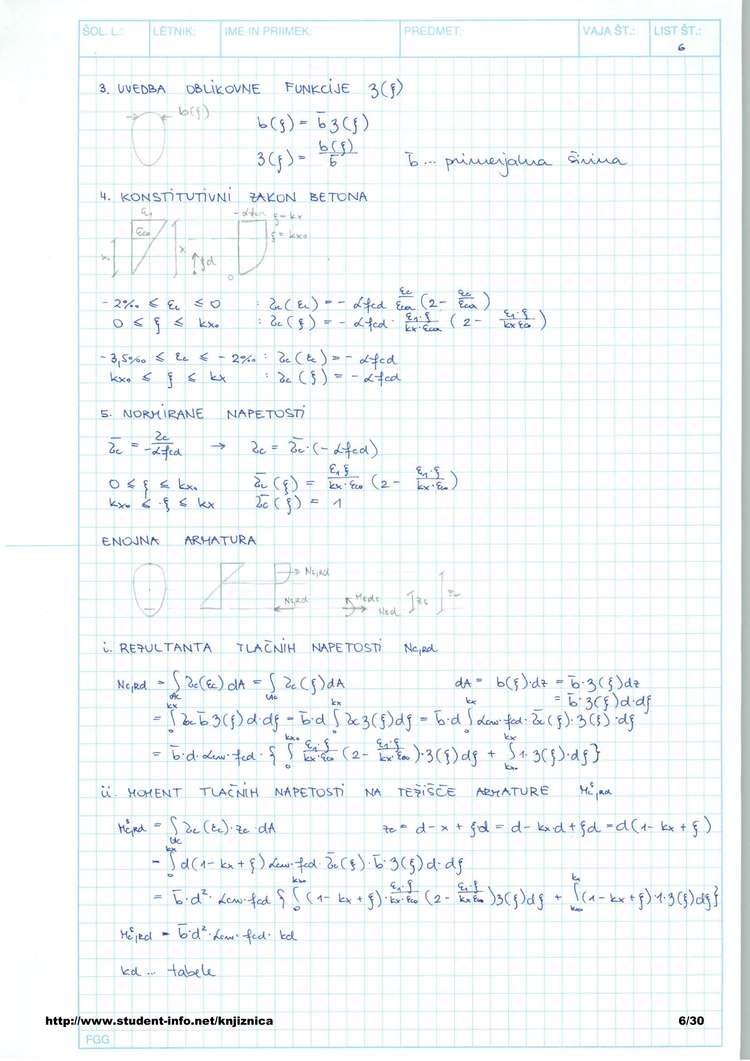 ŠOL. L.: LETNIK: IME IN PRIIMEK: PREDMET: VAJA ŠT.: LIST ŠT.:
6
3. UVEDBA OBLIKOVNE FUNKCIJE 3(ξ)
b(ξ)
b(ξ) = b̄ 3(ξ)
3(ξ) = b(ξ)/b̄ b̄ ... primerjalna širina
4. KONSTITUTIVNI ZAKON BETONA
ε1 -αfcd ξ=kx
εc0 x ξ=kx0
ξd
0
-2‰ ≤ εc ≤ 0 : σc(εc) = -αfcd εc/εc0 (2 - εc/εc0)
0 ≤ ξ ≤ kx0 : σc(ξ) = -αfcd · ε1·ξ/kx·εc0 (2 - ε1·ξ/kx εc0)
-3,5‰ ≤ εc ≤ -2‰ : σc(εc) = -αfcd
kx0 ≤ ξ ≤ kx : σc(ξ) = -αfcd
5. NORMIRANE NAPETOSTI
σ̄c = σc/-αfcd → σc = σ̄c·(-αfcd)
0 ≤ ξ ≤ kx0 σ̄c(ξ) = ε1·ξ/kx·εc0 (2 - ε1·ξ/kx·εc0)
kx0 ≤ ξ ≤ kx σ̄c(ξ) = 1
ENOJNA ARMATURA
Nc,Rd
Ns,Rd MEds NEd zs
i. REZULTANTA TLAČNIH NAPETOSTI Nc,Rd
Nc,Rd = ∫Ac σc(εc) dA = ∫Ac σc(ξ) dA dA = b(ξ)·dz = b̄·3(ξ) dz
= b̄·3(ξ) d·dξ
= ∫0^kx σc b̄ 3(ξ) d·dξ = b̄·d ∫0^kx σc 3(ξ) dξ = b̄·d ∫0^kx αcw·fcd·σ̄c(ξ)·3(ξ)·dξ
= b̄·d·αcw·fcd·{∫0^kx0 ε1·ξ/kx·εc0 (2 - ε1·ξ/kx·εc0)·3(ξ) dξ + ∫kx0^kx 1·3(ξ)·dξ}
ii. MOMENT TLAČNIH NAPETOSTI NA TEŽIŠČE ARMATURE Msc,Rd
Msc,Rd = ∫Ac σc(εc)·zc·dA zc = d - x + ξd = d - kxd + ξd = d(1 - kx + ξ)
= ∫0^kx d(1 - kx + ξ) αcw·fcd·σ̄c(ξ)·b̄·3(ξ) d·dξ
= b̄·d²·αcw·fcd {∫0^kx0 (1 - kx + ξ)·ε1·ξ/kx·εc0 (2 - ε1·ξ/kx·εc0) 3(ξ) dξ + ∫kx0^kx (1 - kx + ξ)·1·3(ξ) dξ}
Msc,Rd = b̄·d²·αcw·fcd·kd
kd ... tabele
http://www.student-info.net/knjiznica 6/30
FGG